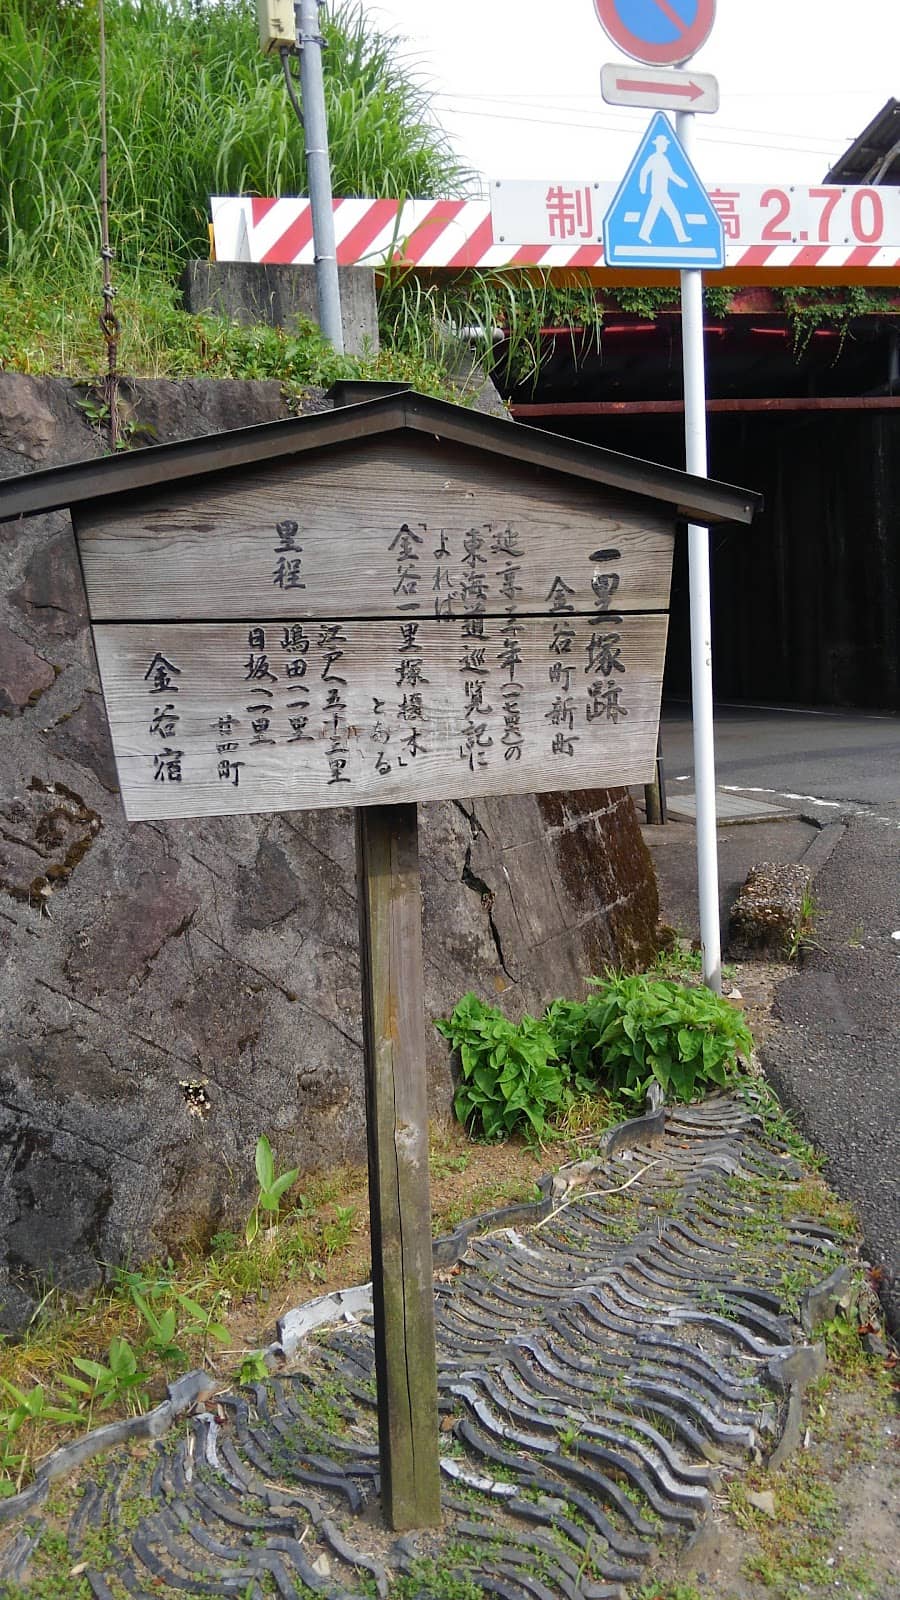 一里塚跡
金谷町新町
延享三年(一七四六)の
「東海道巡覧記」に
よれば
「金谷一里塚榎木」
とある
里程
江戸へ五十三里
嶋田へ一里
日坂へ一里
廿四町
金谷宿
制
高2.70